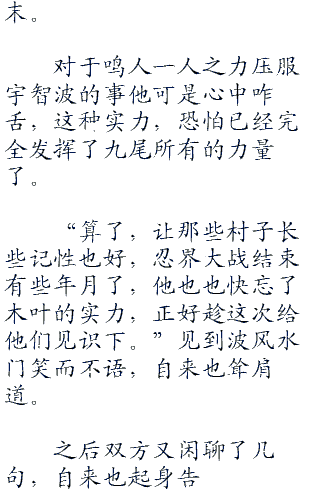 末。
对于鸣人一人之力压服
宇智波的事他可是心中咋
舌，这种实力，恐怕已经完
全发挥了九尾所有的力量
了。
“算了，让那些村子长
些记性也好，忍界大战结束
有些年月了，他也也快忘了
木叶的实力，正好趁这次给
他们见识下。”见到波风水
门笑而不语，自来也耸肩
道。
之后双方又闲聊了几
句，自来也起身告